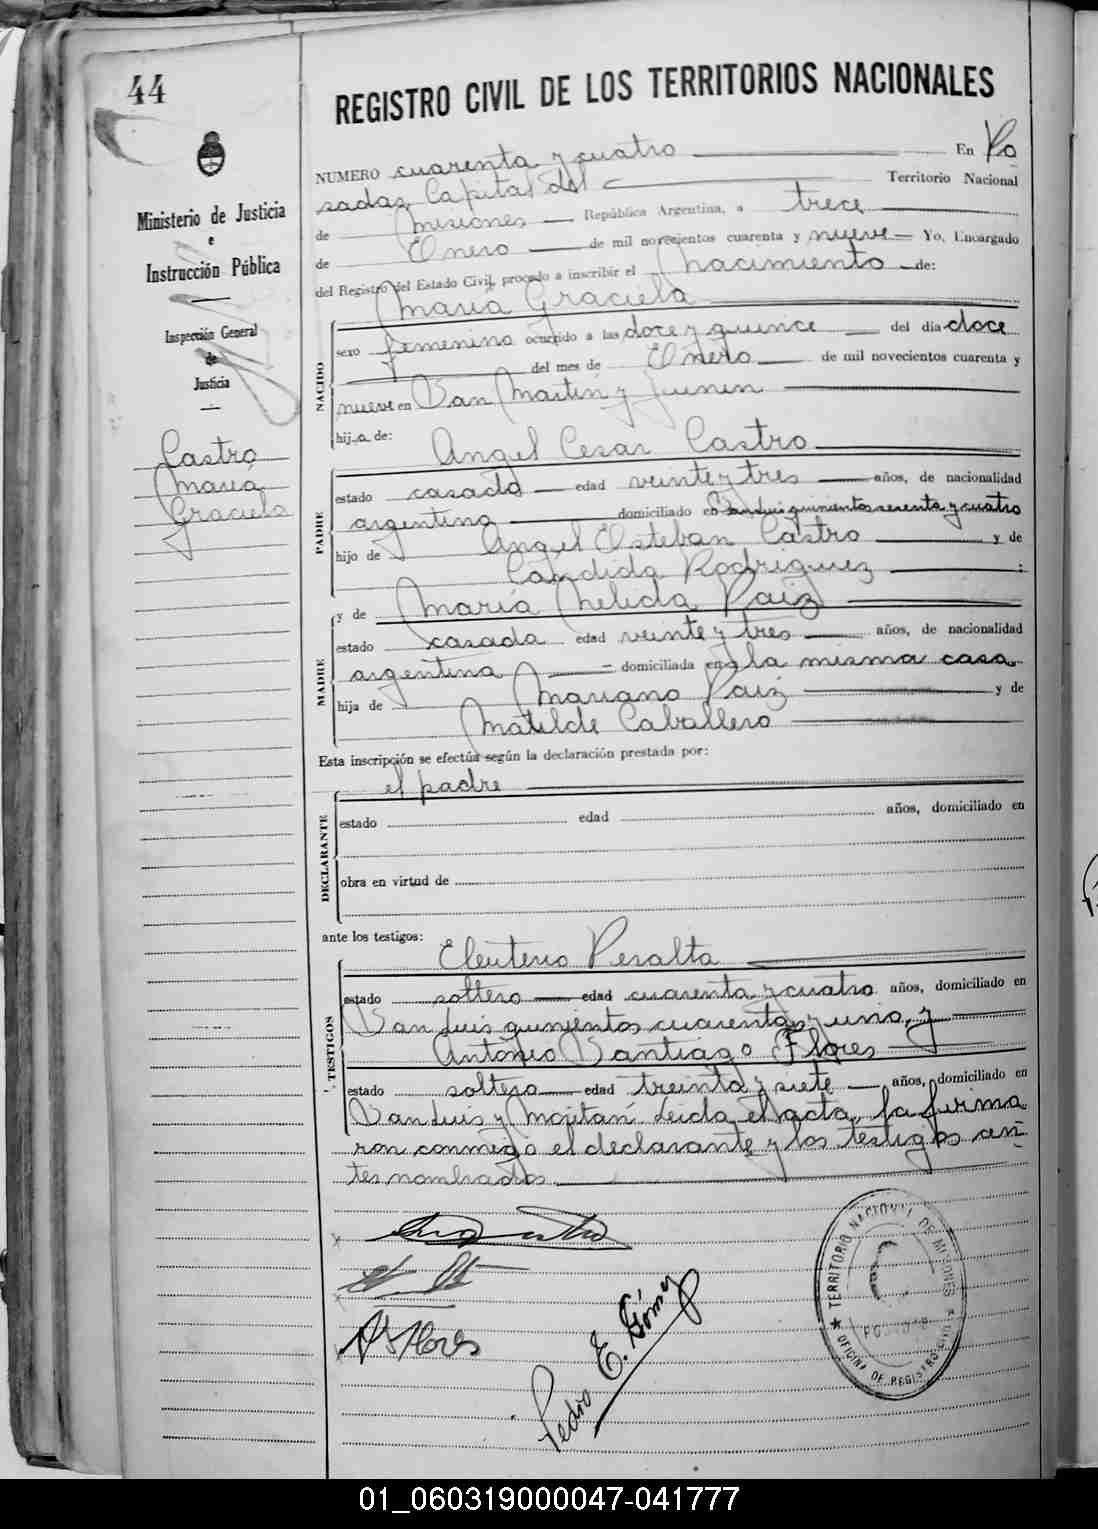 44
REGISTRO CIVIL DE LOS TERRITORIOS NACIONALES
Ministerio de Justicia
e
Instrucción Pública
Inspección General
de
Justicia
Castro
Maria
Graciela
NUMERO cuarenta y cuatro En Po
sadas Capital del Territorio Nacional
de Misiones República Argentina, a trece
de Enero de mil novecientos cuarenta y nueve Yo, Encargado
del Registro del Estado Civil, procedo a inscribir el Nacimiento de:
Maria Graciela
NACIDO
sexo femenino ocurrido a las doce y quince del día doce
del mes de Enero de mil novecientos cuarenta y
nueve en San Martin y Junin
hija de: Angel Cesar Castro
PADRE
estado casado edad veinte y tres años, de nacionalidad
argentina domiciliado en San Luis quinientos sesenta y cuatro
hijo de Angel Esteban Castro y de
Candida Rodriguez ;
y de María Nelida Paiz
MADRE
estado casada edad veinte y tres años, de nacionalidad
argentina domiciliada en la misma casa
hija de Mariano Paiz y de
Matilde Caballero
Esta inscripción se efectúa según la declaración prestada por:
el padre
DECLARANTE
estado edad años, domiciliado en
obra en virtud de
ante los testigos:
Eleuterio Peralta
TESTIGOS
estado soltero edad cuarenta y cuatro años, domiciliado en
San Luis quinientos cuarenta y uno, y
Antonio Santiago Flores
estado soltero edad treinta y siete años, domiciliado en
San Luis y Moritán Leida el acta, la firma
ron conmigo el declarante y los testigos an
tes nombrados
A S Flores
Pedro E. Gómez
TERRITORIO NACIONAL DE MISIONES
POSADAS
OFICINA DE REGISTRO CIVIL
01_060319000047-041777